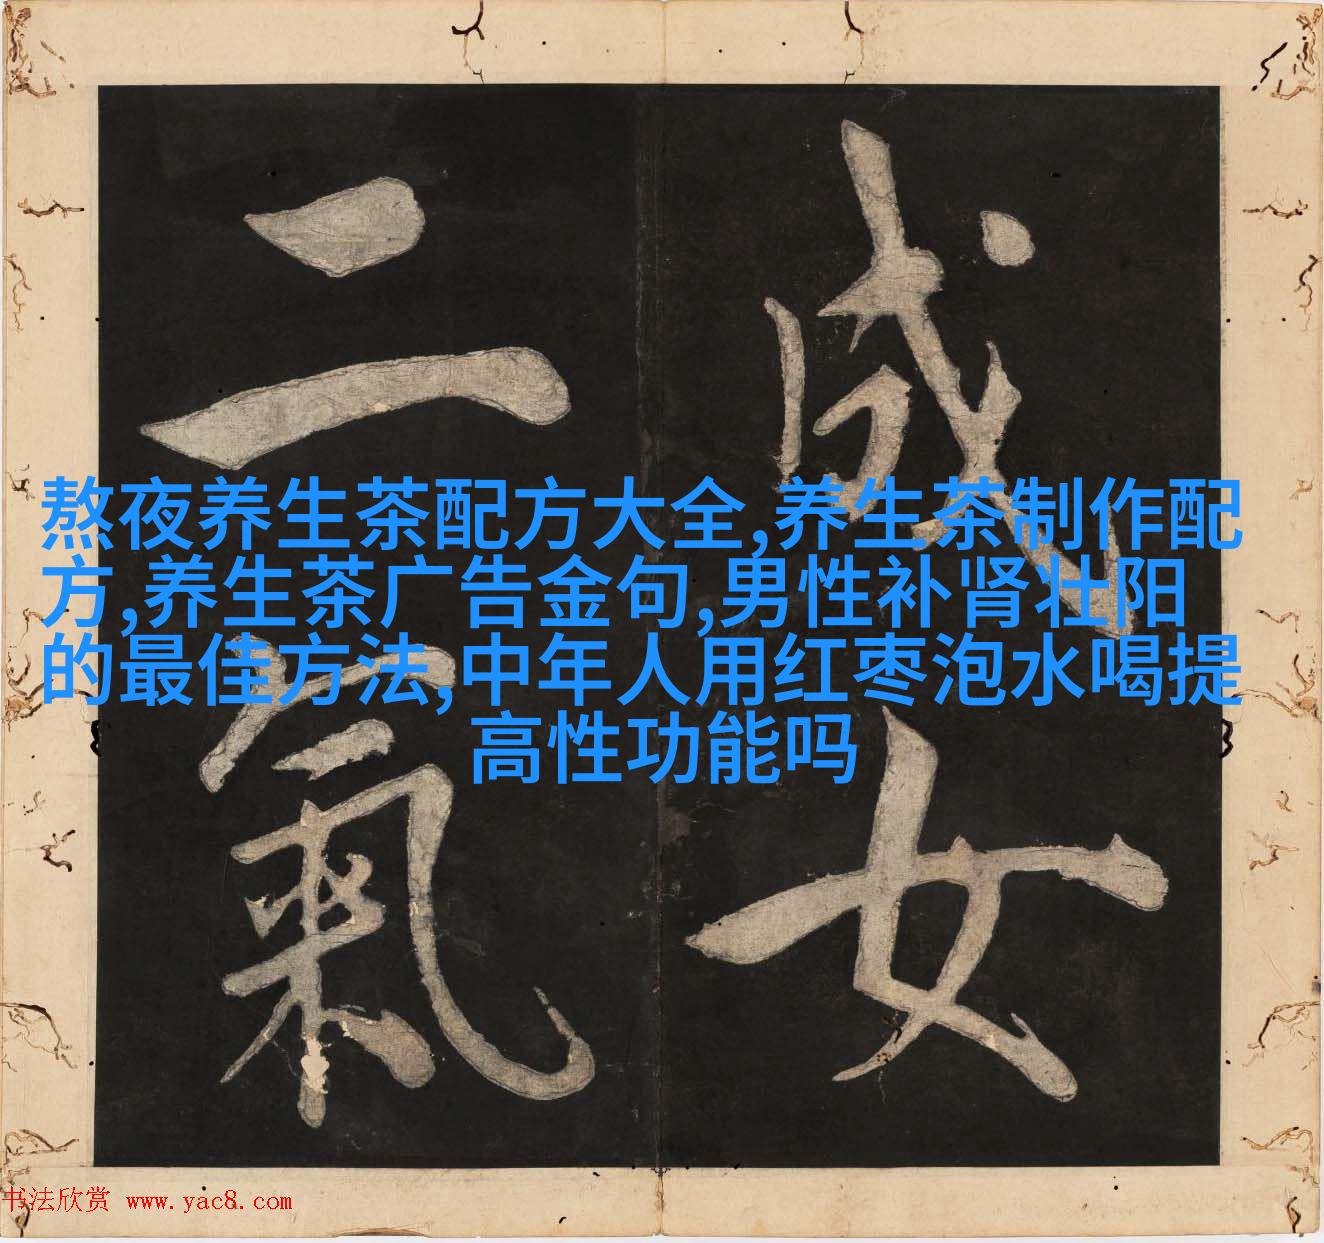 成女
二氣
熬夜养生茶配方大全,养生茶制作配
方,养生茶广告金句,男性补肾壮阳
的最佳方法,中年人用红枣泡水喝提
高性功能吗
书法欣赏 www.yac8.com